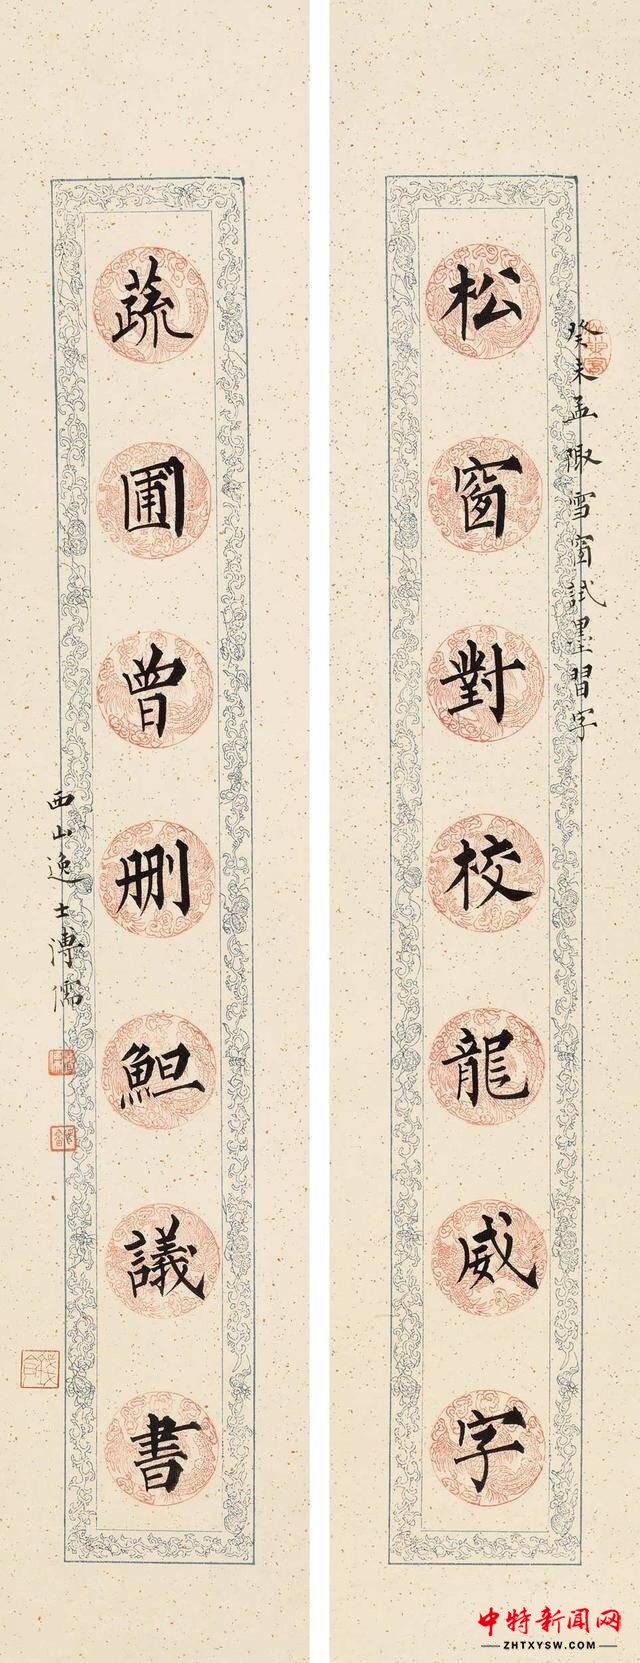 癸未孟陬雪窗試墨習字
松窗對校龍威字
蔬圃曾刪䱇議書
西山逸士溥儒
中特新闻网
ZHTXYSW.COM